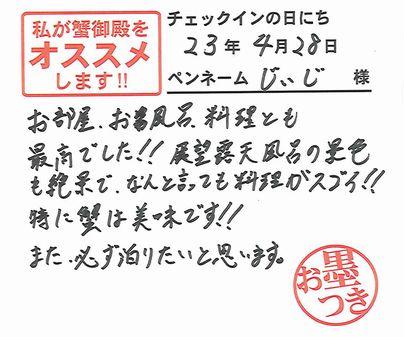 私が蟹御殿を
オススメ
します!!
チェックインの日にち
23年4月28日
ペンネーム じぃじ 様
お部屋、お風呂、料理とも
最高でした!! 展望露天風呂の景色
も絶景で、なんと言っても料理がスゴイ!!
特に蟹は美味です!!
また、必ず泊りたいと思います。
お墨つき